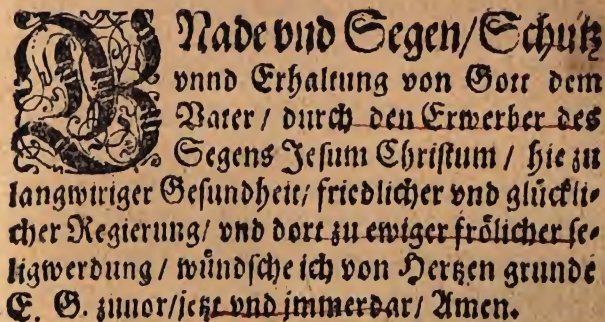 GNade vnd Segen/Schutz
vnnd Erhaltung von Gott dem
Vater / durch den Erwerber des
Segens Jesum Christum / hie zu
langwiriger Gesundheit/ friedlicher vnd glückli-
cher Regierung/ vnd dort zu ewiger frölicher se-
ligwerdung / wündsche ich von Hertzen grunde
E. G. zuuor/jetzt vnd jmmerdar/ Amen.